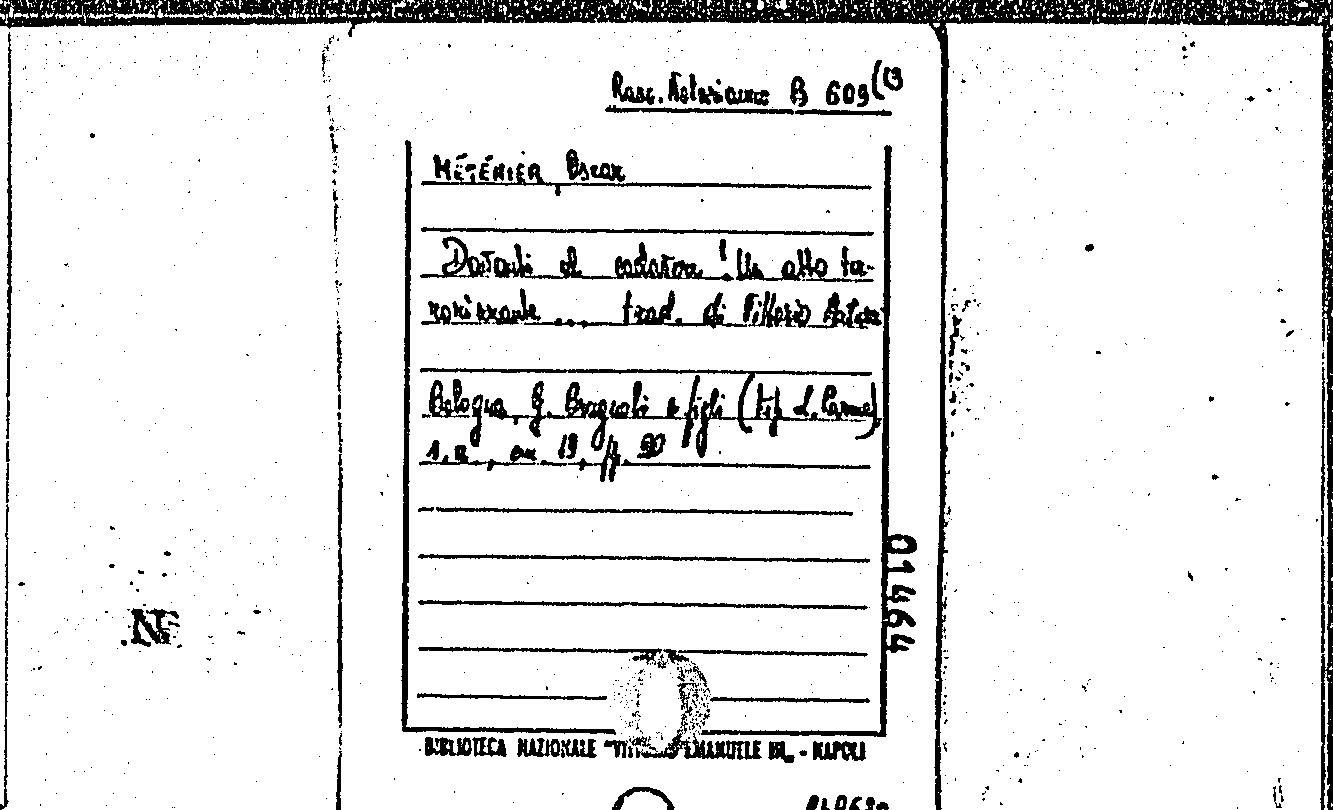 Racc. Notariamo B 609(13
MÉTÉNIER, Oscar
Davanti al cadavere! Un atto ter-
rorizzante ... trad. di Vittorio
Bologna, G. Brugnoli e figli (tip. L. Parma),
s.a., in 19, pp. 20
014464
N
BIBLIOTECA NAZIONALE "VITTORIO EMANUELE III" - NAPOLI